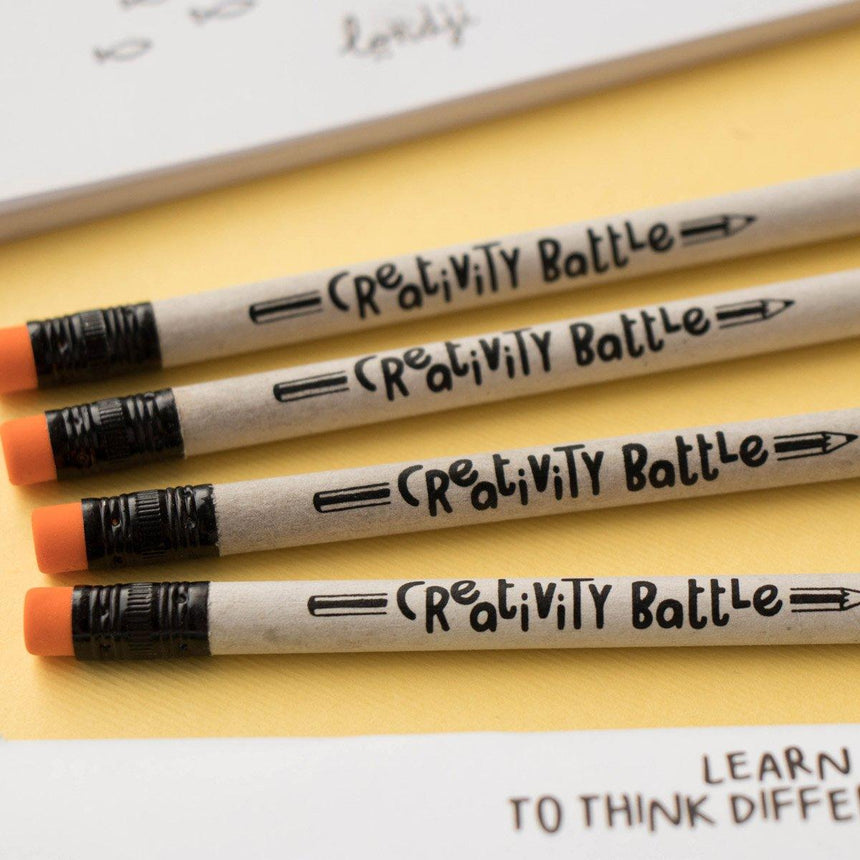 londji
Creativity Battle
Creativity Battle
Creativity Battle
Creativity Battle
LEARN
TO THINK DIFFE